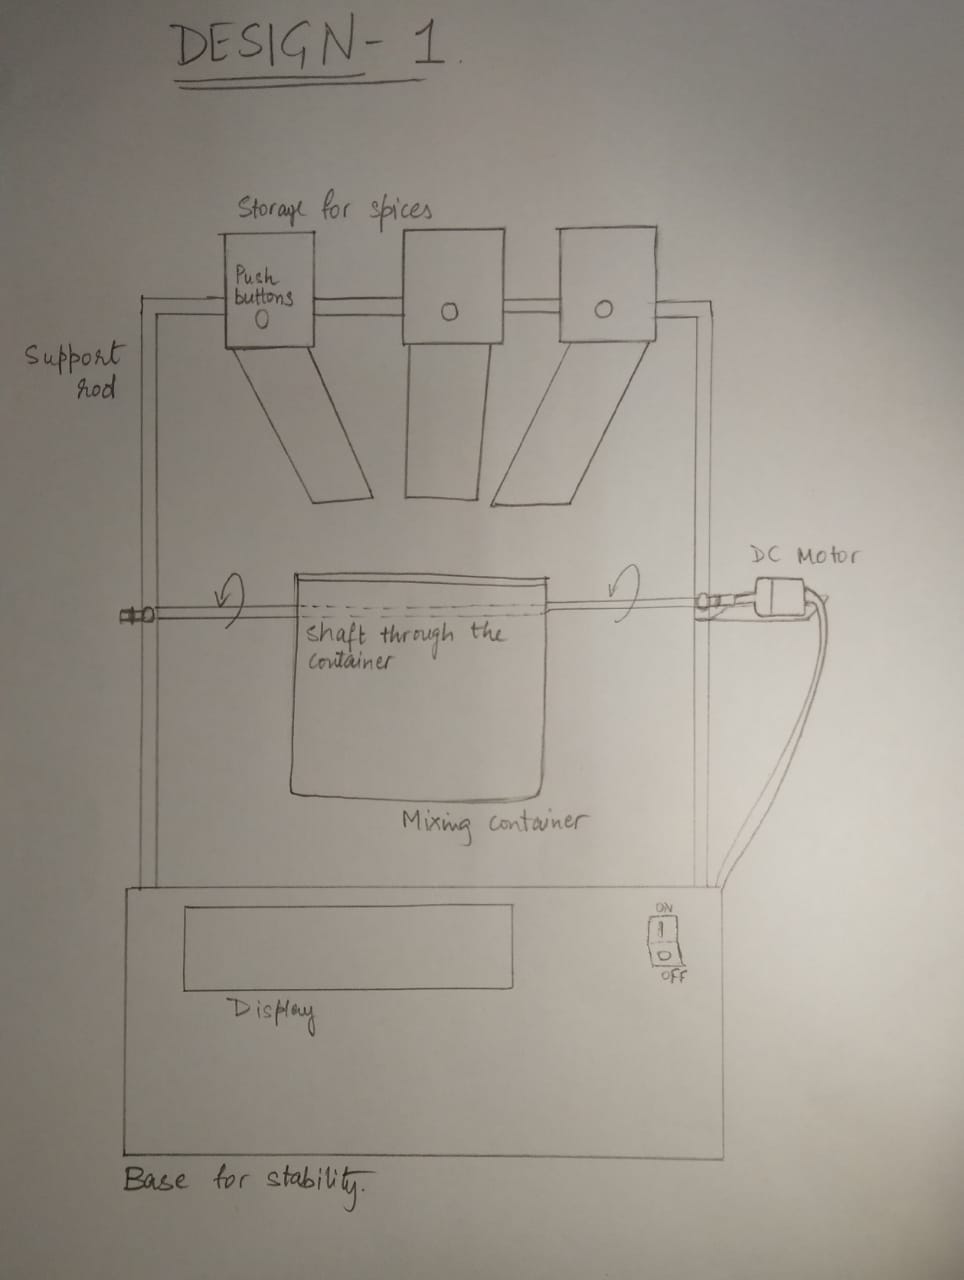 DESIGN - 1.
Storage for spices
Push
buttons
Support
rod
DC Motor
shaft through the
container
Mixing container
ON
OFF
Display
Base for stability.